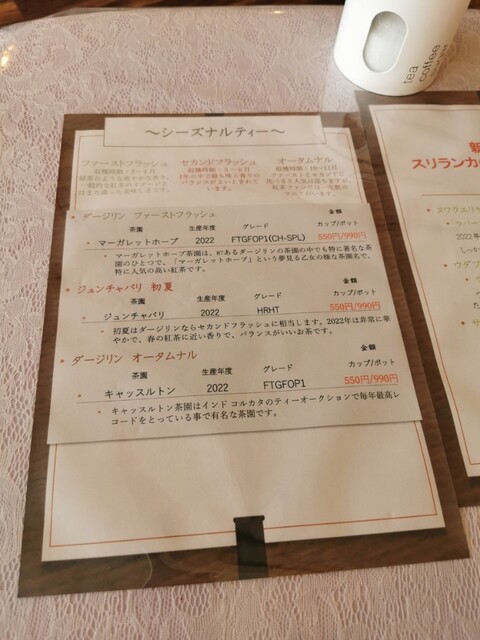 tea
coffee
～シーズナルティー～
ファーストフラッシュ
収穫時期：3～4月
セカンドフラッシュ
収穫時期：5～6月
1年の中で最も味と香りの
バランスがよいとされて
います。
オータムナル
収穫時期：10～11月
ダージリン ファーストフラッシュ
金額
茶園 生産年度 グレード カップ/ポット
マーガレットホープ 2022 FTGFOP1(CH-SPL) 550円/990円
マーガレットホープ茶園は、87あるダージリンの茶園の中でも特に著名な茶
園のひとつで、「マーガレットホープ」という夢見る乙女の様な茶園名で、
特に人気の高い紅茶です。
ジュンチャバリ 初夏
金額
茶園 生産年度 グレード カップ/ポット
ジュンチャバリ 2022 HRHT 550円/990円
初夏はダージリンならセカンドフラッシュに相当します。2022年は非常に華
やかで、春の紅茶に近い香りで、バランスがいいお茶です。
ダージリン オータムナル
金額
茶園 生産年度 グレード カップ/ポット
キャッスルトン 2022 FTGFOP1 550円/990円
キャッスルトン茶園はインド コルカタのティーオークションで毎年最高レ
コードをとっている事で有名な茶園です。
スリランカ
2022年